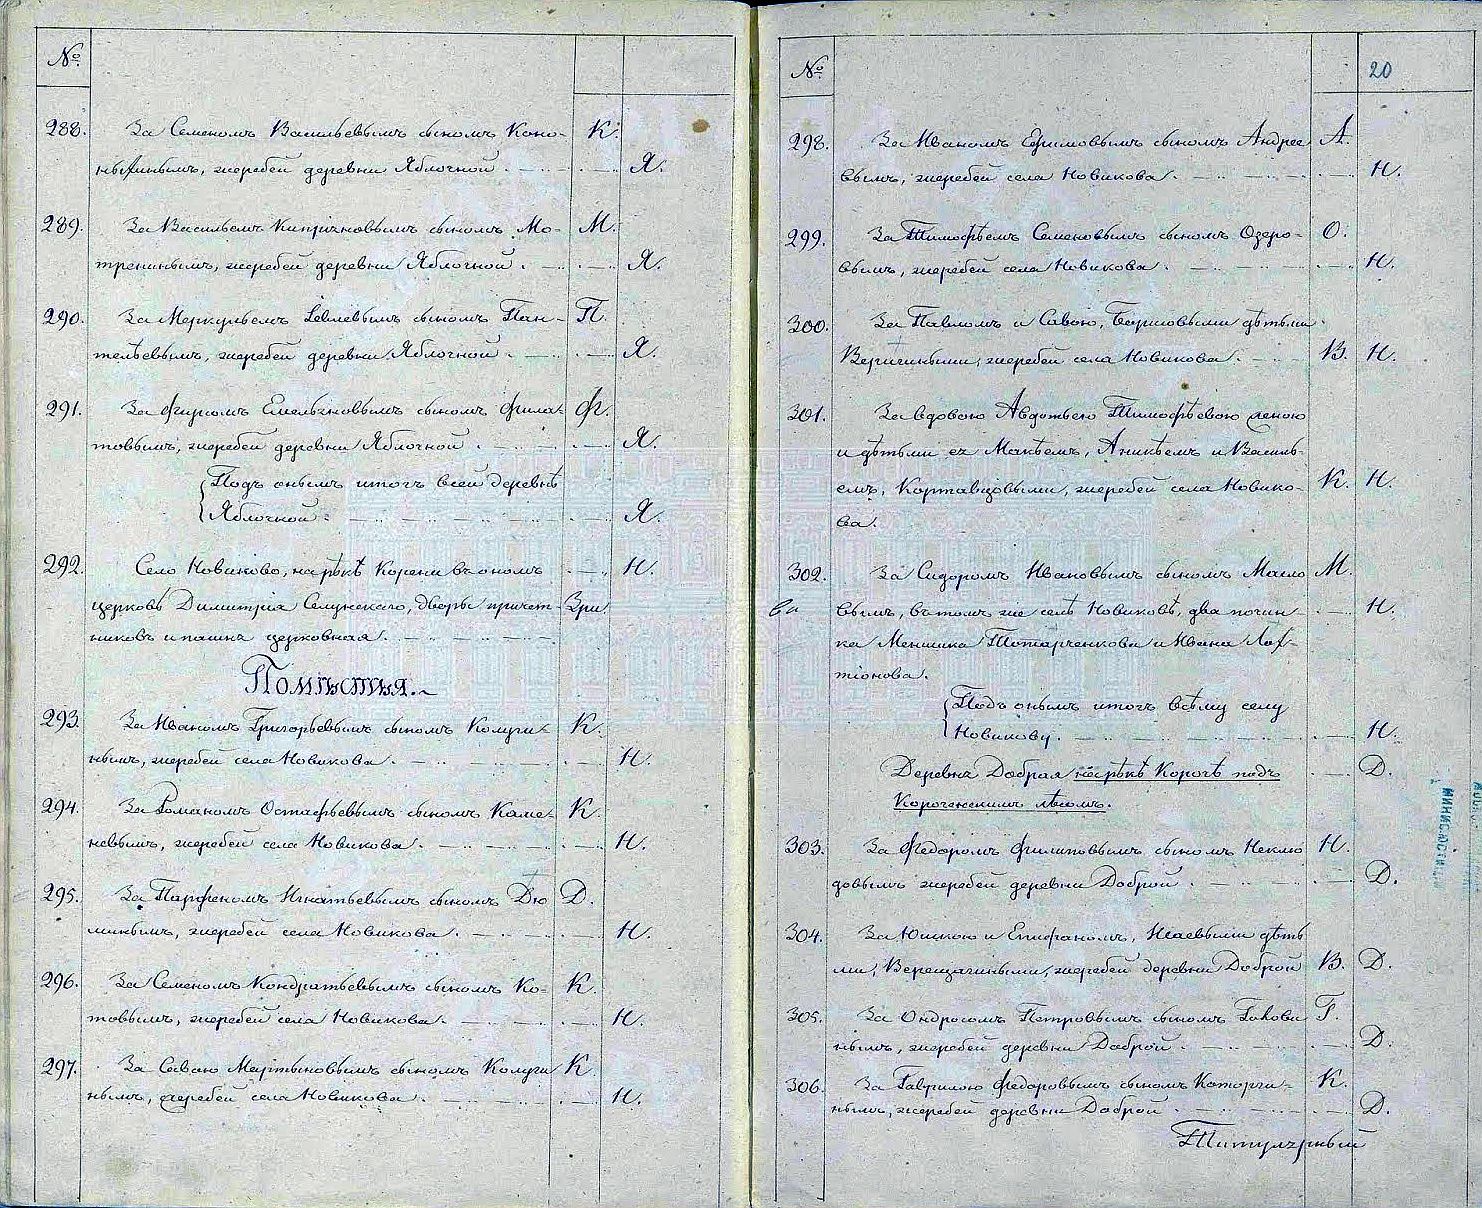 №
288. За Семеномъ Васильевымъ сыномъ Коно- К.
ныхинымъ, жеребей деревни Яблочной. Я.
289. За Васильемъ Киприяновымъ сыномъ Мо- М.
тренинымъ, жеребей деревни Яблочной. Я.
290. За Меркульемъ Іевлевымъ сыномъ Пан- П.
телѣевымъ, жеребей деревни Яблочной. Я.
291. За Фирсомъ Емельяновымъ сыномъ Фила- Ф.
товымъ, жеребей деревни Яблочной. Я.
Подъ онымъ итогъ всей деревнѣ
Яблочной. Я.
292. Село Новиково, на рѣкѣ Корени въ ономъ Н.
церковь Димитрія Селунскаго, дворы причет- Зри.
никовъ и пашня церковная.
Помѣстья.
293. За Иваномъ Григорьевымъ сыномъ Колуги- К.
нымъ, жеребей села Новикова. Н.
294. За Романомъ Остафьевымъ сыномъ Каме- К.
невымъ, жеребей села Новикова. Н.
295. За Парфеномъ Игнатьевымъ сыномъ Дю Д.
минымъ, жеребей села Новикова. Н.
296. За Семеномъ Кондратьевымъ сыномъ Ко- К.
товымъ, жеребей села Новикова. Н.
297. За Саваю Мартыновымъ сыномъ Колуги К.
нымъ, жеребей села Новикова. Н.
№ 20
298. За Иваномъ Ефимовымъ сыномъ Андрее А.
вымъ, жеребей села Новикова. Н.
299. За Тимофѣемъ Семеновымъ сыномъ Озеро- О.
вымъ, жеребей села Новикова. Н.
300. За Павломъ и Савою, дѣтьми
Веригиными, жеребей села Новикова. В. Н.
301. За вдовою Авдотьею Тимофѣевою женою
и дѣтьми ея Макѣемъ, Аникѣемъ и Василь-
емъ, Картавцовыми, жеребей села Новико- К. Н.
ва.
302. За Сидоромъ Ивановымъ сыномъ Масло М.
вымъ, въ томъ же селѣ Новиковѣ, два почин- Н.
ка Меншика Тотарченкова и Ивана Лах-
тіонова.
Подъ онымъ итогъ всѣму селу
Новикову. Н.
Деревня Добрая на рѣкѣ Корочѣ подъ Д.
Короченскимъ лѣсомъ.
303. За Федоромъ Филиповымъ сыномъ Неклю Н.
довымъ жеребей деревни Доброй. Д.
304. За Юшкою и Епифаномъ, Исаевыми дѣть
ми, Верещагиными, жеребей деревни Доброй В. Д.
305. За Ондросомъ Петровымъ сыномъ Гахови Г.
нымъ, жеребей деревни Доброй. Д.
306. За Гаврилою Федоровымъ сыномъ Каторги- К.
нымъ, жеребей деревни Доброй. Д.
Титулярный